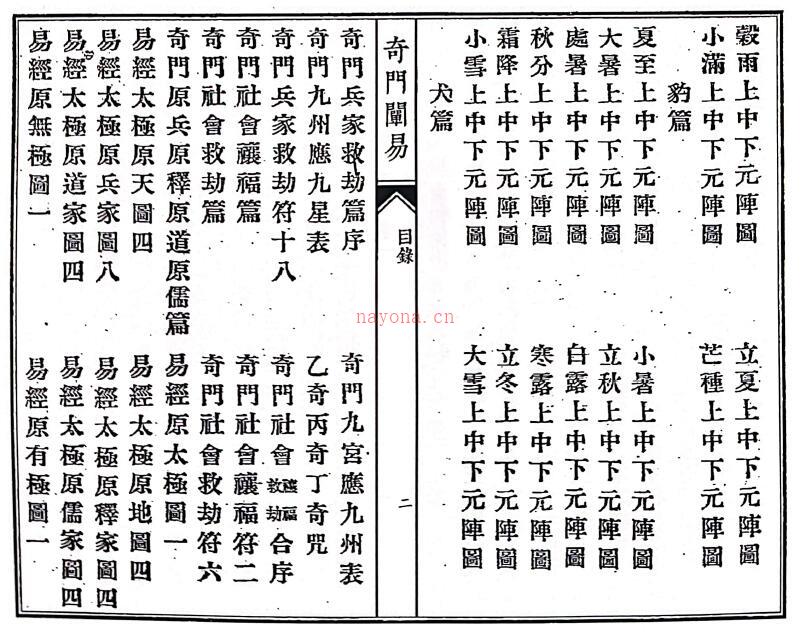 穀雨上中下元陣圖
立夏上中下元陣圖
小滿上中下元陣圖
芒種上中下元陣圖
豹篇
夏至上中下元陣圖
小暑上中下元陣圖
大暑上中下元陣圖
立秋上中下元陣圖
處暑上中下元陣圖
白露上中下元陣圖
秋分上中下元陣圖
寒露上中下元陣圖
霜降上中下元陣圖
立冬上中下元陣圖
小雪上中下元陣圖
大雪上中下元陣圖
犬篇
奇門闡易
目錄
二
奇門兵家救劫篇序
奇門九宮應九州表
奇門九州應九星表
乙奇丙奇丁奇咒
奇門兵家救劫符十八
奇門社會禳福救劫合序
奇門社會禳福篇
奇門社會禳福符二
奇門社會救劫篇
奇門社會救劫符六
奇門原兵原釋原道原儒篇
易經原太極圖一
易經太極原天圖四
易經太極原地圖四
易經太極原兵家圖八
易經太極原釋家圖四
易經太極原道家圖四
易經太極原儒家圖四
易經原無極圖一
易經原有極圖一
nayona.cn